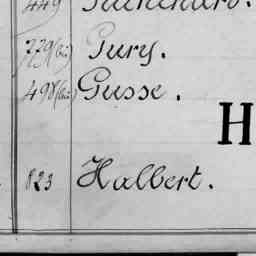 449
779(bis) Gury.
498(bis) Gusse.
H
823 Halbert.